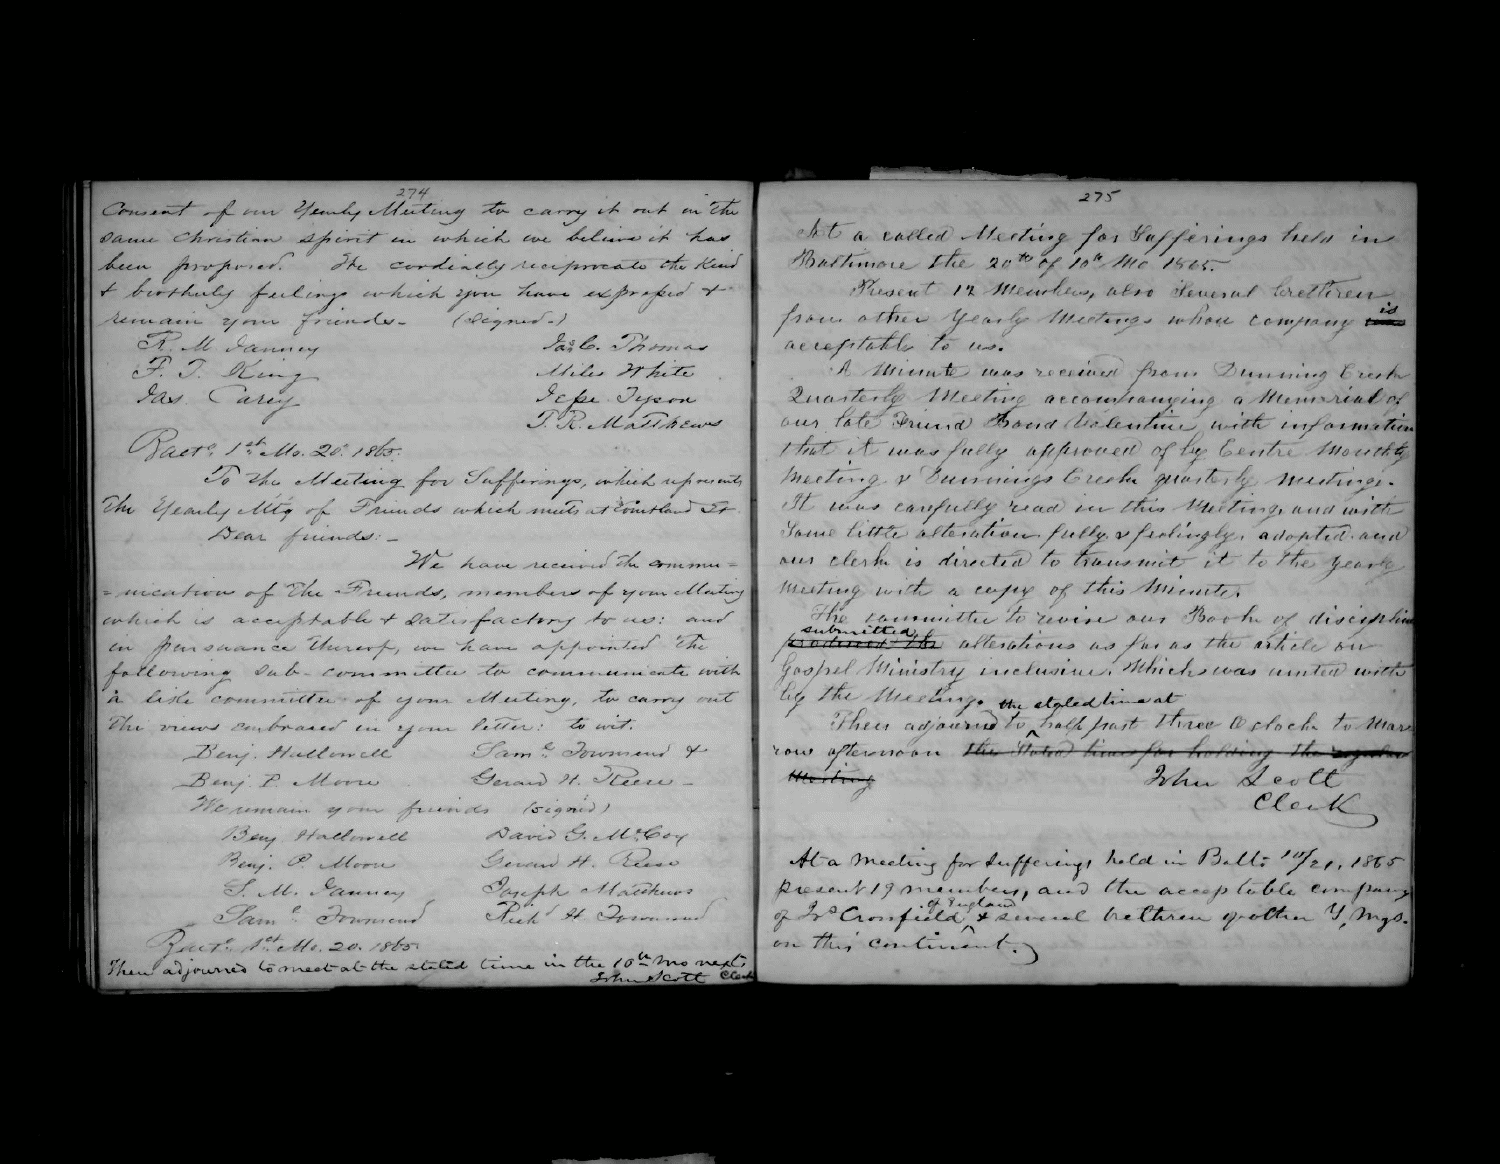 274
Consent of our Yearly Meeting to carry it out in the
same Christian spirit in which we believe it has
been proposed. We cordially reciprocate the kind
& brotherly feelings which you have expressed &
remain your friends - (signed -)
R. M. Janney Jas. C. Thomas
F. T. King Miles White
Jas. Carey Jesse Tyson
T. R. Matthews
Balto. 1st Mo. 20. 1865.
To the Meeting for Sufferings, which represents
the Yearly Mtg of Friends which meets at Courtland St.
Dear friends: -
We have received the commu=
=nication of the Friends, members of your Meeting
which is acceptable & satisfactory to us: and
in pursuance thereof, we have appointed the
following sub-committee to communicate with
a like committee of your Meeting, to carry out
the views embraced in your letter: to wit.
Benj. Hallowell Saml. Townsend &
Benj. P. Moore Gerard H. Reese -
We remain your friends (signed)
Benj Hallowell David G. McCoy
Benj. P. Moore Gerard H. Reese
S. M. Janney Joseph Matthews
Saml. Townsend Richd H. Townsend
Balto. 1st Mo. 20. 1865.
Then adjourned to meet at the stated time in the 10th mo next.
John Scott Clerk
275
At a called Meeting for Sufferings held in
Baltimore the 20th of 10th Mo. 1865.
Present 12 Members, also Several brethren
from other Yearly Meetings whose company is
acceptable to us.
A Minute was received from Dunning Creek
Quarterly Meeting accompanying a Memorial of
our late Friend Bond Valentine, with information
that it was fully approved of by Centre Monthly
Meeting & Dunnings Creek quarterly meetings.
It was carefully read in this Meeting, and with
Some little alteration fully & feelingly, adopted and
our clerk is directed to transmit it to the yearly
meeting with a copy of this Minute.
The committee to revise our Book of discipline
submitted
produced the alterations as far as the article on
Gospel Ministry inclusive. Which was united with
by the Meeting.
the stated time at
Then adjourned to half past three O clock to Mor
row afternoon the Stated time for holding the regular
Meeting John Scott
Clerk
At a meeting for sufferings held in Balto 10/21, 1865
present 19 members, and the acceptable company
of England
of Jos Crosfield & several brethren of other Y, Mgs.
on this continent.